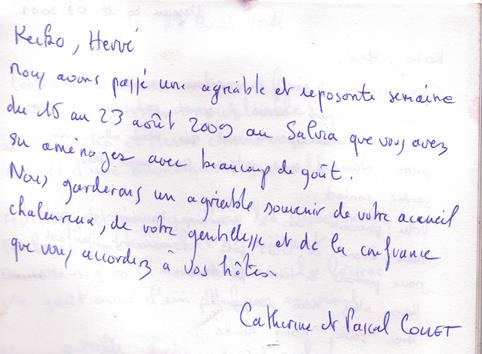 Keiko, Hervé
Nous avons passé une agréable et reposante semaine
du 15 au 23 août 2009 au Salvia que vous avez
su aménager avec beaucoup de goût.
Nous garderons un agréable souvenir de votre accueil
chaleureux, de votre gentillesse et de la confiance
que vous accordez à vos hôtes.
Catherine et Pascal COLLET